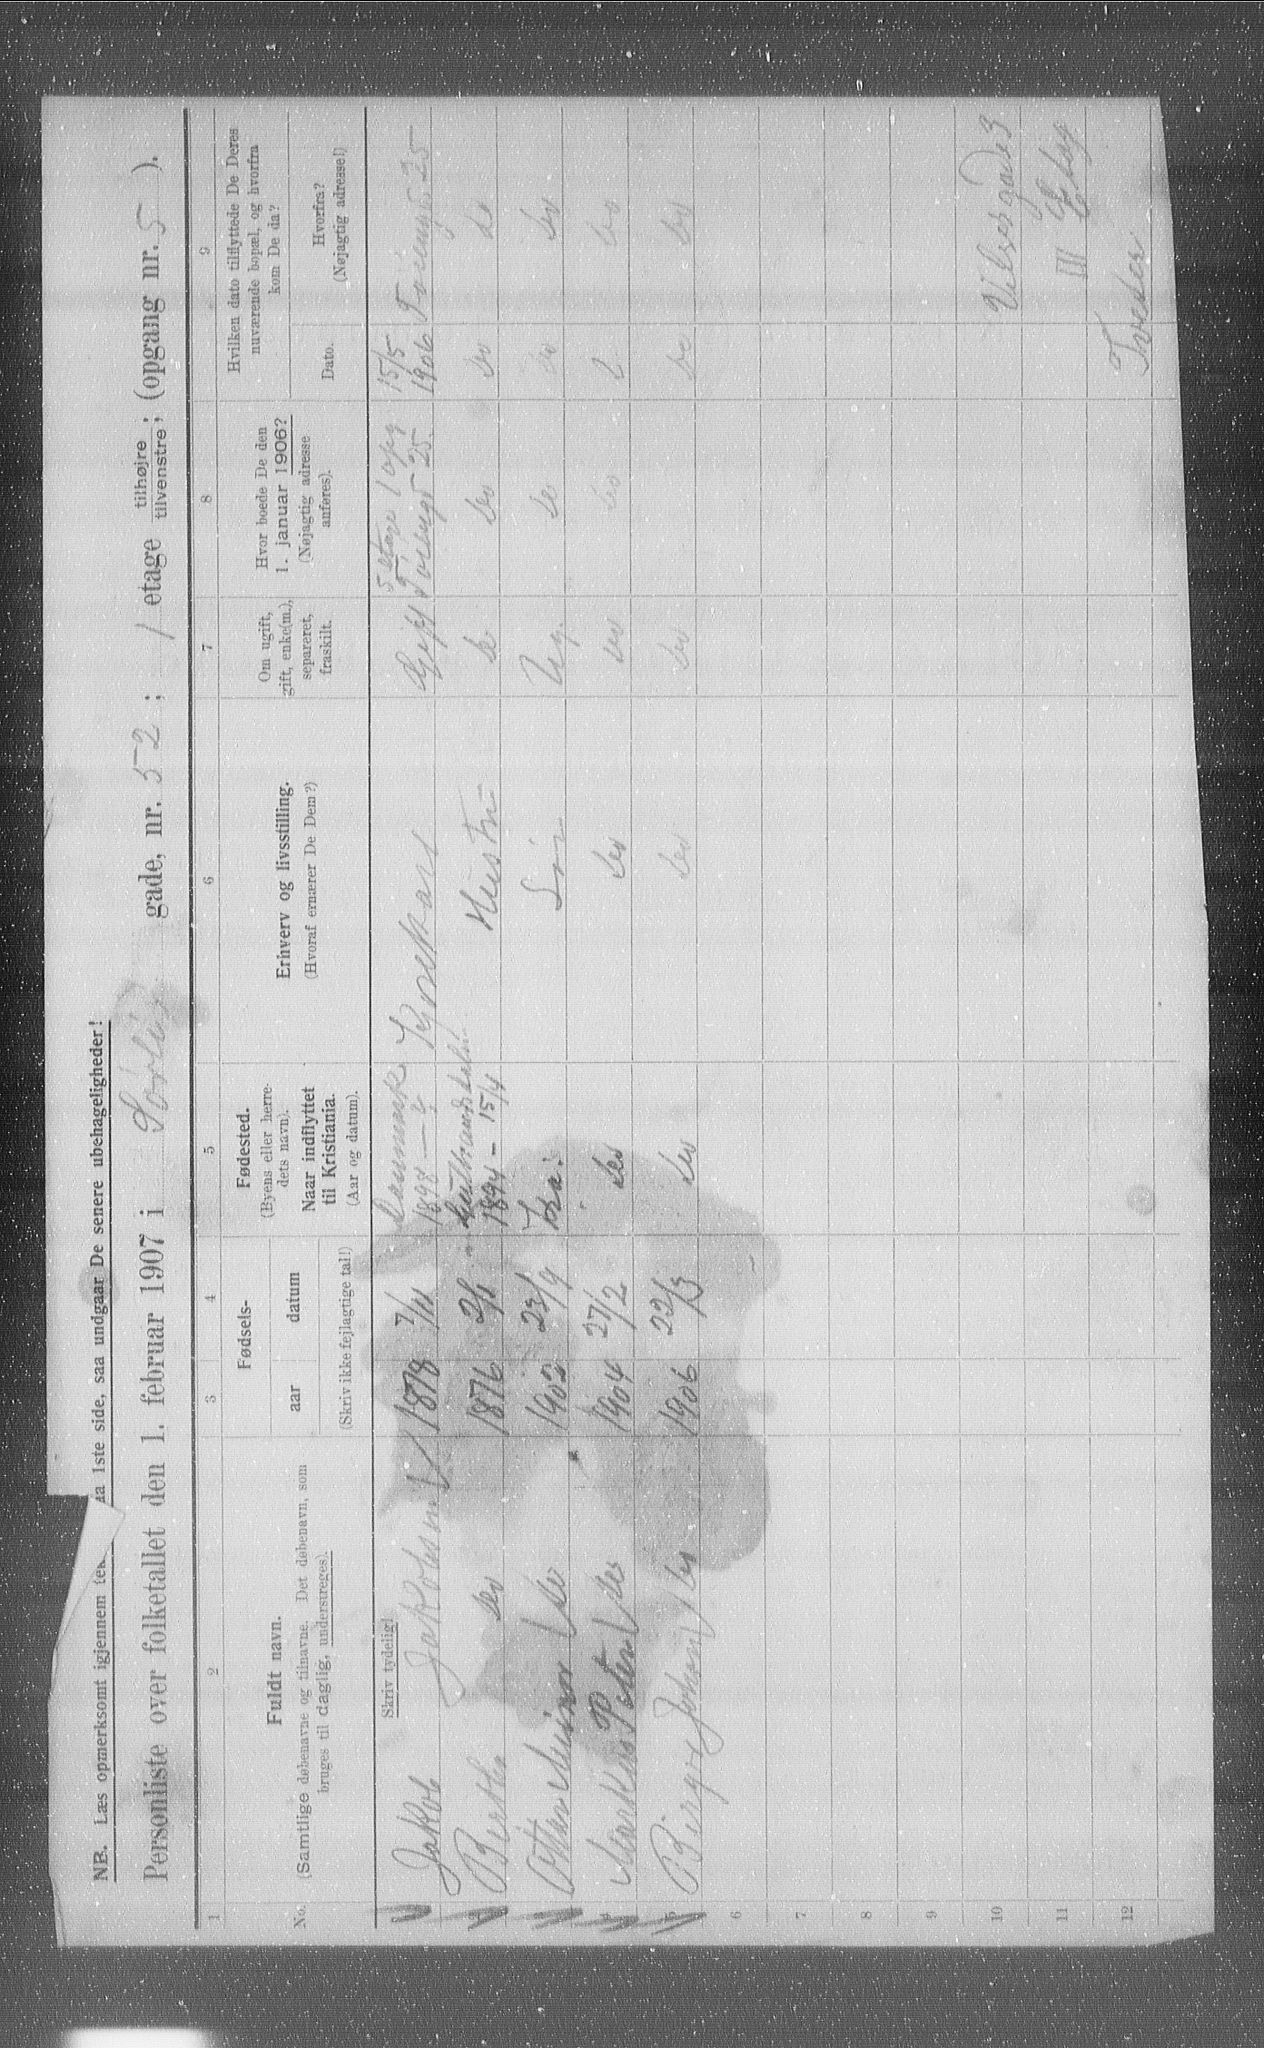 NB. Læs opmerksomt igjennem paa 1ste side, saa undgaar De senere ubehageligheder!
Personliste over folketallet den 1. februar 1907 i gade, nr. 52; 1 etage tilhøjre tilvenstre; (opgang nr. 5).
1 2 3 4 5 6 7 8 9
No.
Fuldt navn.
(Samtlige døbenavne og tilnavne. Det døbenavn, som
bruges til daglig, understreges).
Fødsels-
aar datum
(Skriv ikke fejlagtige tal!)
Fødested.
(Byens eller herre-
dets navn).
Naar indflyttet
til Kristiania.
(Aar og datum).
Erhverv og livsstilling.
(Hvoraf ernærer De Dem?)
Om ugift,
gift, enke(m.),
separeret,
fraskilt.
Hvor boede De den
1. januar 1906?
(Nøjagtig adresse
anføres).
Hvilken dato tilflyttede De Deres
nuværende bopæl, og hvorfra
kom De da?
Dato.
Hvorfra?
(Nøjagtig adresse!)
Skriv tydelig!
Jakob Jakobsen 1878 7/11 Danmark 1898 Gift 5 etage 1 opg 25. 15/5 1906 25
Berthe do 1876 2/1 Gulbrandsdalen 1894 - 15/4 Hustru do do do do
do 1902 23/9 Kra. Søn Ug. do do do
Markus Peter do 1904 27/2 do do do do do
5 Birger Johan do 1906 22/3 do do do do do
6
7
8
9
10 3
11 III Etag
12